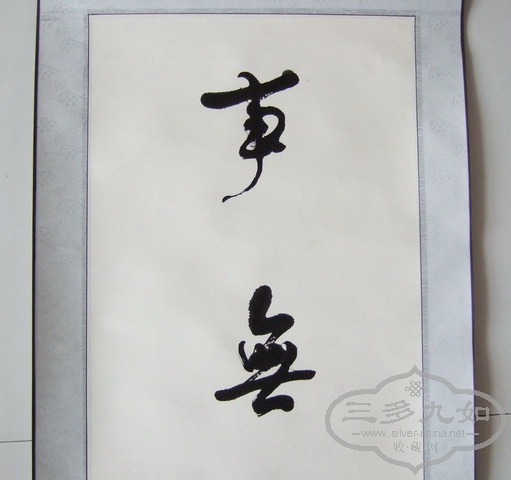 事
無
三多九如
www.silver-china.net
收藏网